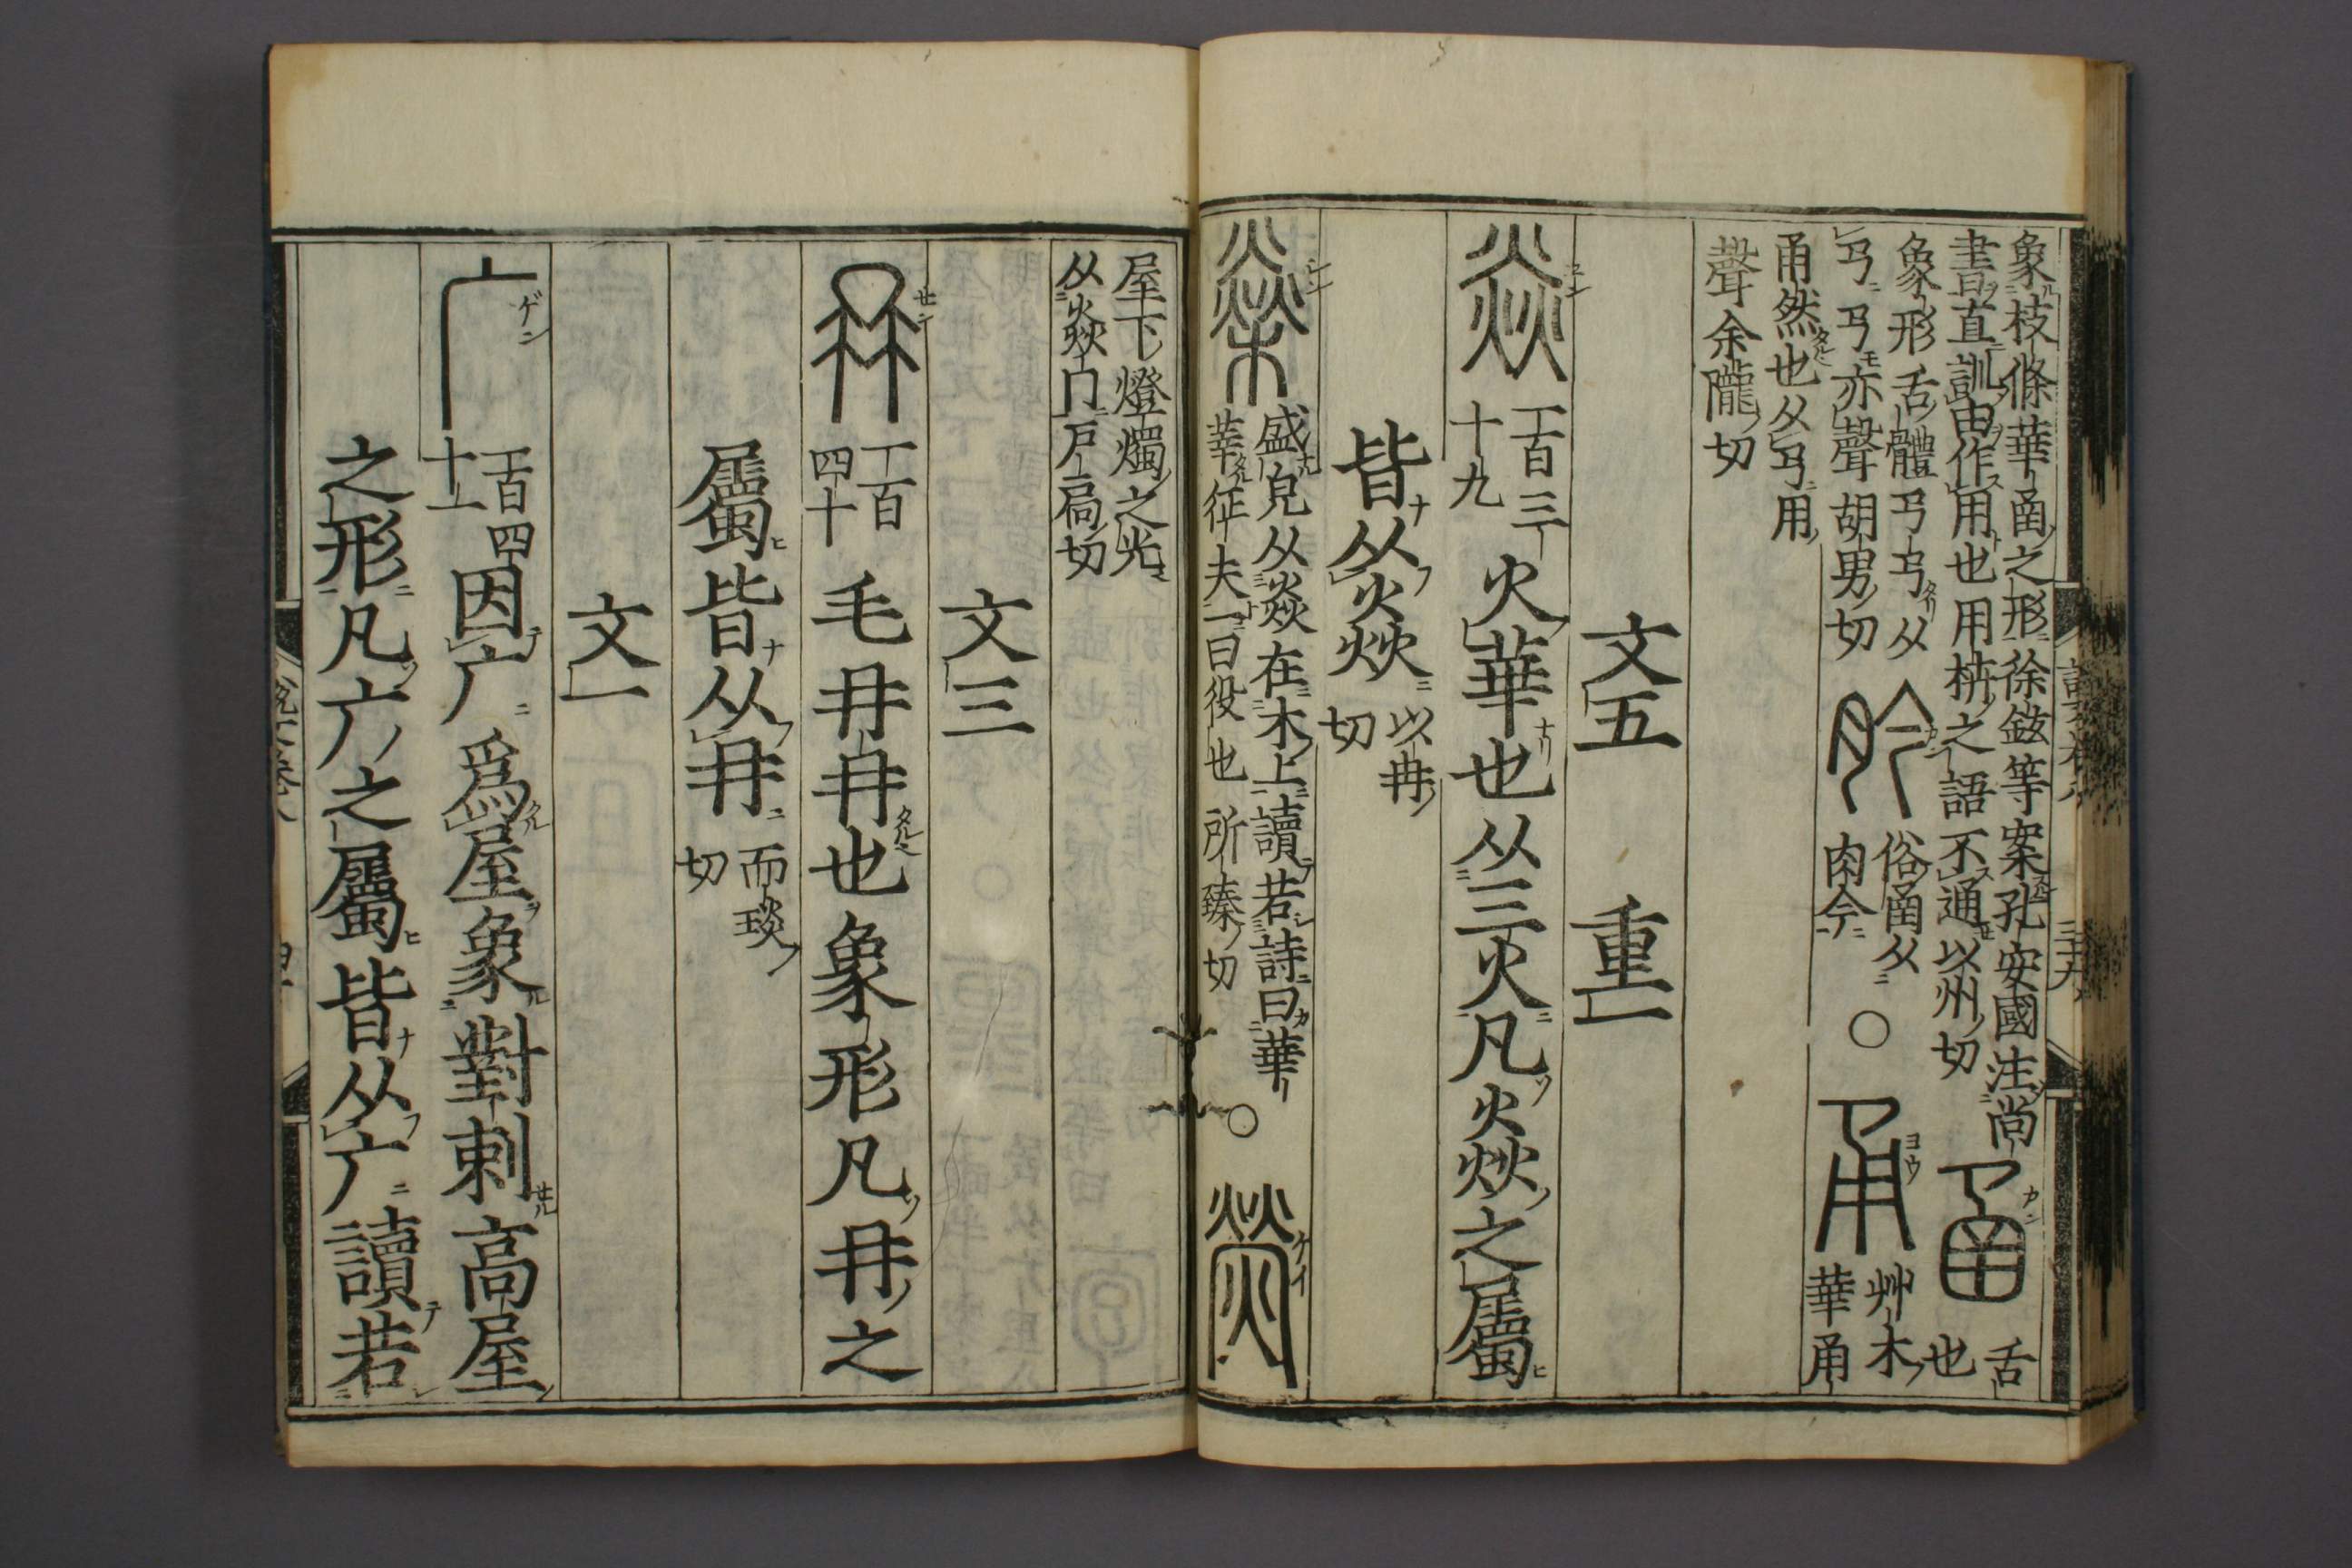 象枝條華𢎘之形徐鉉等案孔安國注尚
書直訓由作用也用枿之語不通以州切
𢎘
舌也
象形舌體𢎘𢎘从
𢎘𢎘亦聲胡男切
肣
俗𢎘从
肉今
○
甬
艸木華甬
甬然也从𢎘用
聲余隴切
文五 重一
焱
一百三
十九
火華也从三火凡焱之屬
皆从焱
以冉
切
燊
盛皃从焱在木上讀若詩曰華
莘征夫一曰役也所臻切
○
熒
屋下燈燭之光
从焱冂戶扃切
文三
冄
一百
四十
毛冄冄也象形凡冄之
屬皆从冄
而琰
切
文一
广
一百四
十一
因广爲屋象對剌高屋
之形凡广之屬皆从广讀若